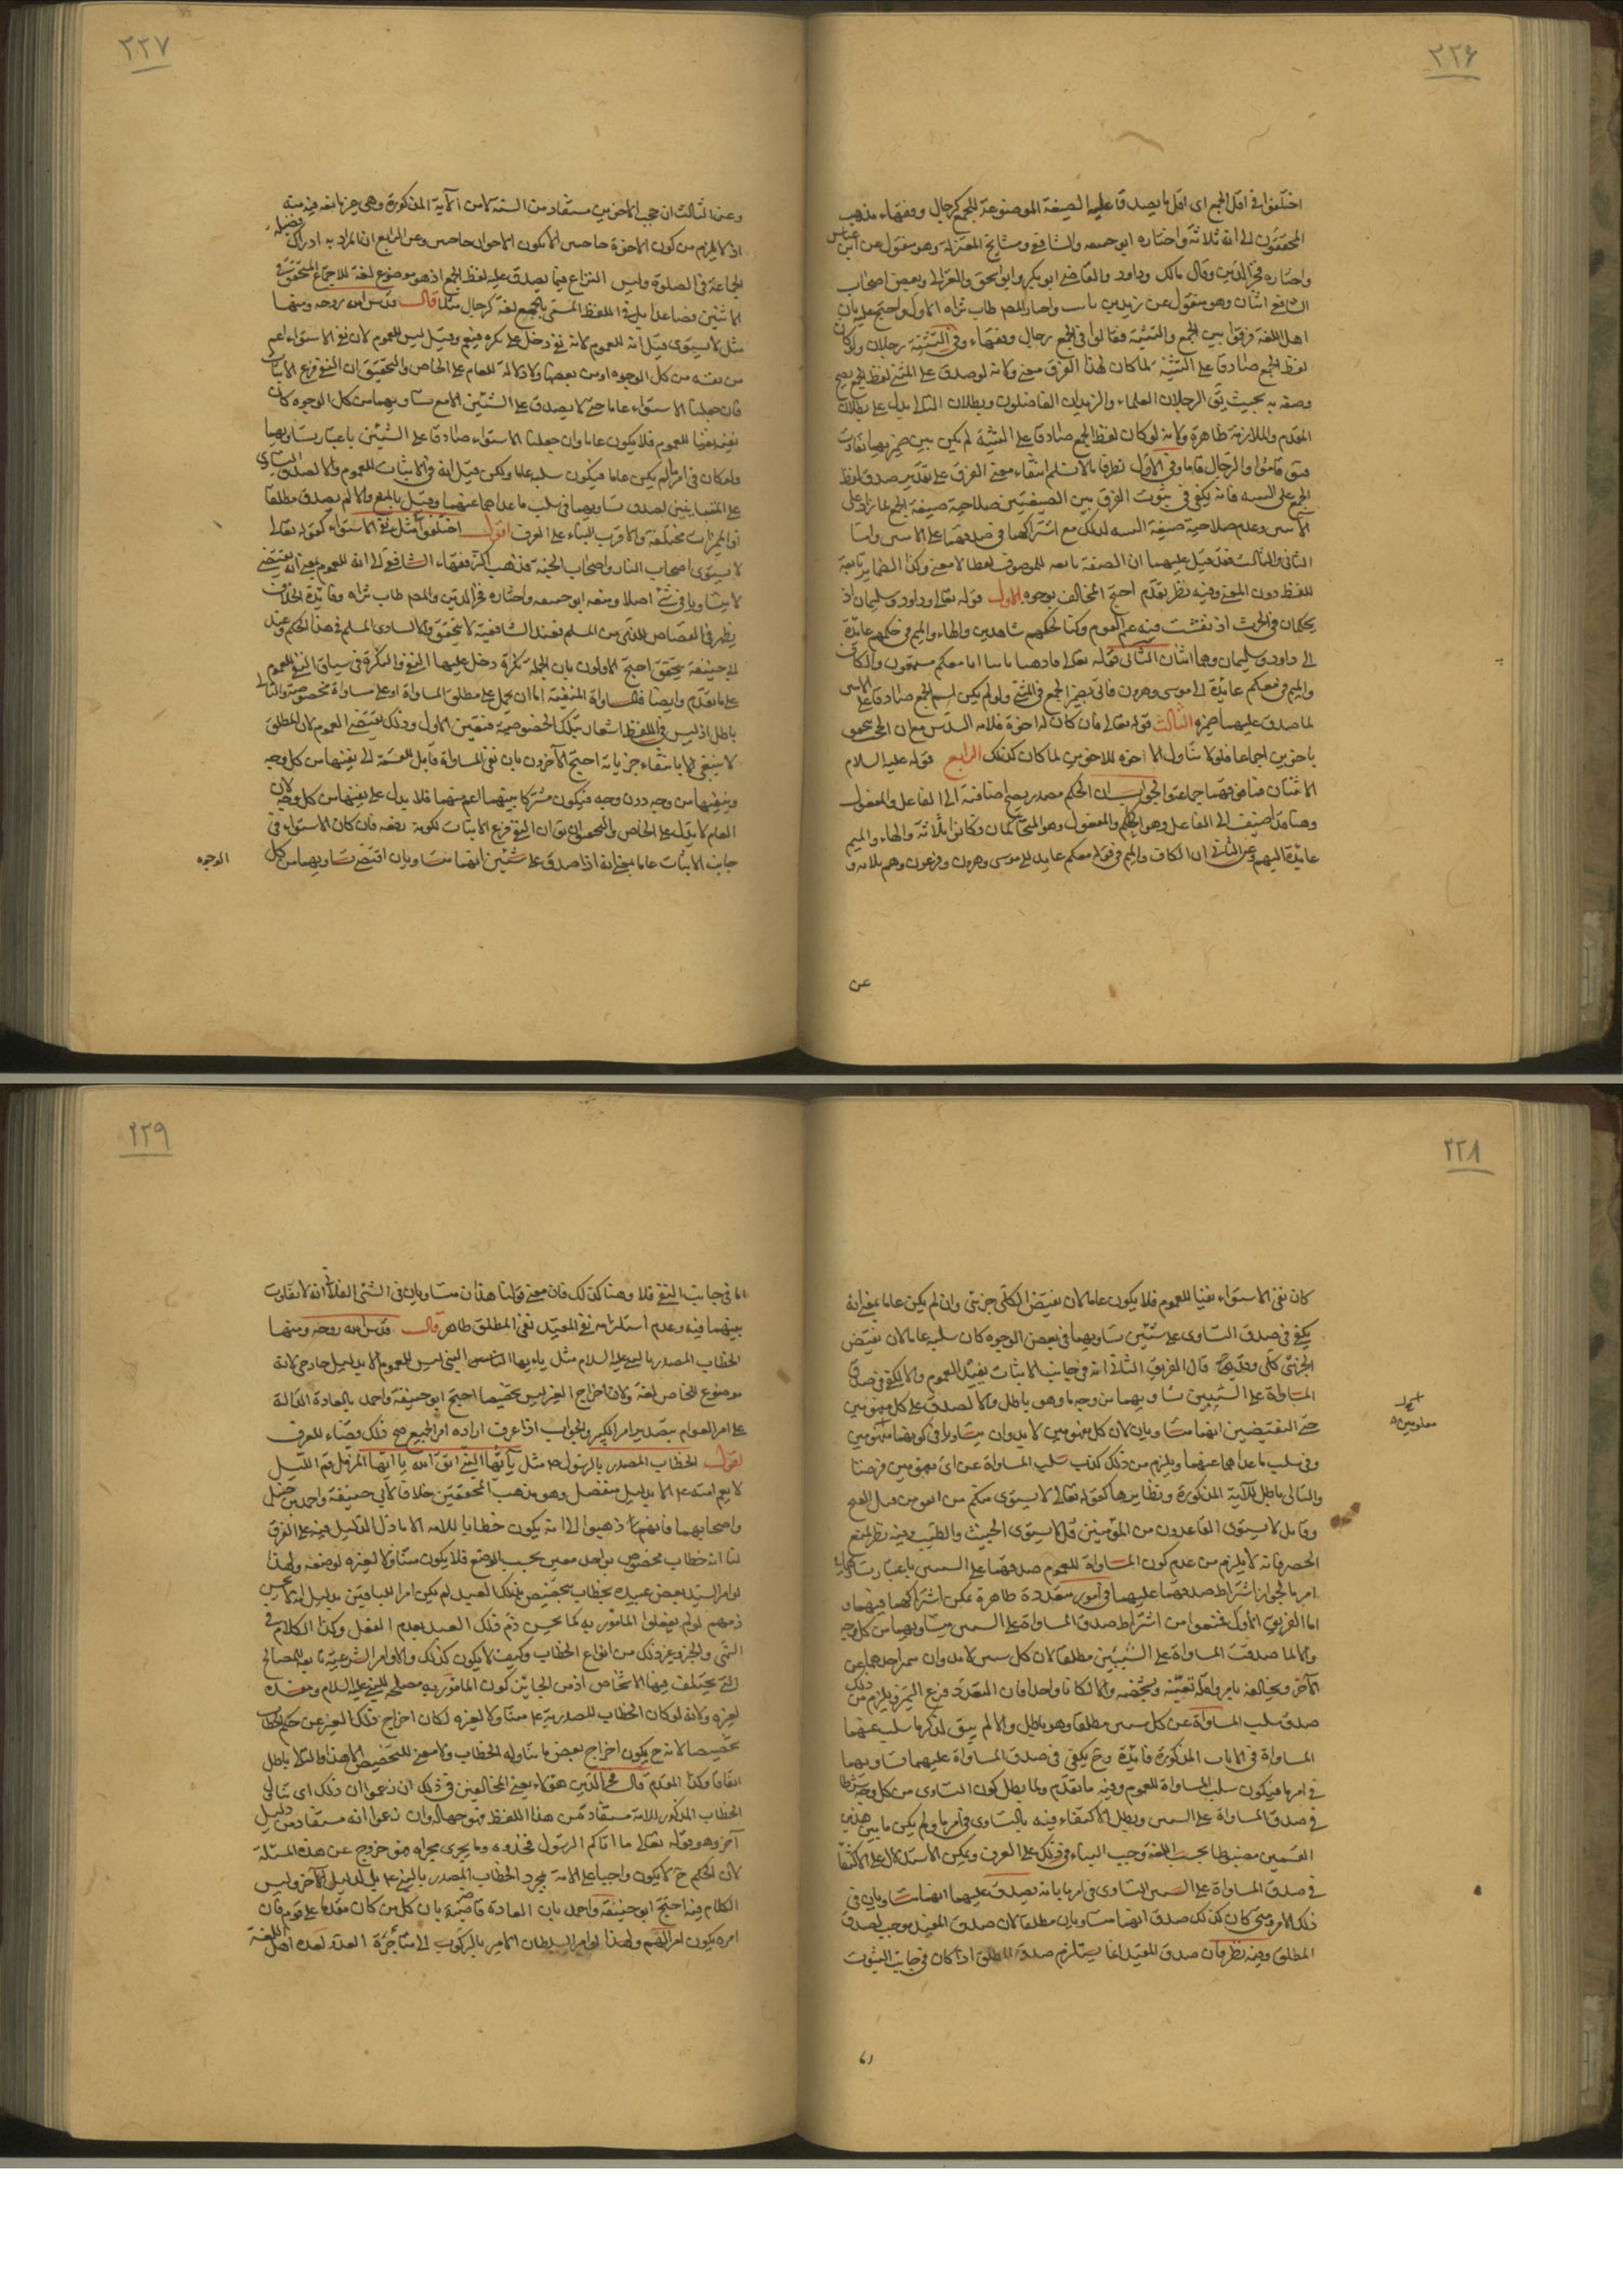 ٢٢۶
اختلفوا في اقل الجمع اى اقل ما يصدق عليه الصيغة الموضوعة للجمع كرجال وفقهاء مذهب
المحققون الى انه ثلاثة واختاره ابو حنيفه والشافعي ومشايخ المعتزلة وهو منقول عن ابن عباس
واختاره فخر الدين وقال مالك وداود والقاضي ابو بكر وابو اسحق والغزالي وبعض اصحاب
الشافعي اثنان وهو منقول عن زيد بن ثابت واختار المصم طاب ثراه الاول واحتج عليه بان
اهل اللغة فرقوا بين الجمع والتثنية فقالوا في الجمع رجال وفقهاء وفي التثنية رجلان ولو كان
لفظ الجمع صادقا على التثنية لما كان لهذا الفرق معنى ولانه لو صدق على المثنى لفظ الجمع لصح
وصفه به بحيث يق الرجلان العلماء والزيدان الفاضلون وبطلان التالى يدل على بطلان
المقدم والملازمة ظاهرة ولانه لو كان لفظ الجمع صادقا على التثنية لم يكن بين ضميريهما تفاوت
فيق قاموا والرجال قاما وفي الاول نظر فانا لانسلم انتفاء معنى الفرق على تقدير صدق لفظ
الجمع على التثنيه فانه يكفى في ثبوت الفرق بين الصيغتين صلاحية صيغة الجمع لما زاد على
الاثنين وعدم صلاحية صيغة التثنيه لذلك مع اشتراكهما في صدقهما على الاثنين واما
الثاني والثالث فقد قيل عليهما ان الصفة تابعه للموصوف لفظا لا معنى وكذا الضماير تابعة
للفظ دون المعنى وفيه نظر تقدم احتج المخالف بوجوه الاول قوله تعالى وداود وسليمان اذ
يحكمان في الحرث اذ نفشت فيه غنم القوم وكنا لحكمهم شاهدين والهاء والميم في حكمهم عايدة
الى داود وسليمان وهما اثنان الثاني قوله تعالى فاذهبا باياتنا انا معكم مستمعون والكاف
والميم في معكم عايدة الى موسى وهرون فاتى بضمير الجمع في المثنى ولو لم يكن اسم الجمع صادقا على الاثنين
لما صدق عليهما ضميره الثالث قوله تعالى فان كان له اخوة فلامه السدس مع ان الحجب يتحقق
باخوين اجماعا فلولا تناول الاخوه للاخوين لما كان كذلك الرابع قوله عليه السلام
الاثنان فما فوقهما جماعة والجواب ان الحكم مصدر يصح اضافته الى الفاعل والمفعول
وهنا قد اضيف الى الفاعل وهو الحاكم والمفعول وهو المتحاكمان وكانوا ثلاثة والهاء والميم
عايدة اليهم وعن الثاني ان الكاف والميم في قوله معكم عايد الى موسى وهرون وفرعون وهم ثلاثة و
عن
٢٢٧
وعن الثالث ان حجب الاخوين مستفاد من السنة لا من الآية المذكورة وهي غير مانعه فيه منه
اذ لا يلزم من كون الاخوة حاجبين الا يكون الاخوان حاجبين وعن الرابع ان المراد به ادراك فضيلة
الجماعة في الصلوة وليس النزاع فيما يصدق عليه لفظ الجمع اذ هو موضوع لغة للاجتماع المتحقق في
الاثنين فصاعدا بل في اللفظ المسمى بالجمع لغة كرجال مثلا قال قدس الله روحه ومنها
مثل لا يستوى قيل انه للعموم لانه نفي دخل على نكره فيعم وقيل ليس للعموم لان نفي الاستواء اعم
من نفيه من كل الوجوه او من بعضها ولا دلالة للعام على الخاص والتحقيق ان النفي فرع الاثبات
فان جعلنا الاستواء عاما حتى لا يصدق على الشيئين الا مع تساويهما من كل الوجوه كان
نفيه نفيا للعموم فلا يكون عاما وان جعلنا الاستواء صادقا على الشيئين باعتبار تساويهما
ولو كان في امر ما لم يكن عاما فيكون سلبه عاما ولكن قيل انه في الاثبات للعموم والا لصدق التساوي
على المتقابلين لصدق تساويهما في سلب ما عداهما عنهما وقيل بالمنع والا لم يصدق مطلقا
اذ المميزات مختلفة والاقرب البناء على العرف اقول اختلفوا في مثل نفي الاستواء كقوله تعالى
لا يستوى اصحاب النار واصحاب الجنة فذهب اكثر فقهاء الشافعية الى انه للعموم يعني انه يقتضي
لا يتساويا في شئ اصلا ومنعه ابو حنيفه واختاره فخر الدين والمصم طاب ثراه وفايدة الخلاف
يظهر في القصاص للذمي من المسلم فعند الشافعية لا يتحقق والا لساوى المسلم في هذا الحكم وعند
ابي حنيفة يتحقق احتج الاولون بان الجملة نكرة دخل عليها النفي والنكرة في سياق النفي للعموم
على ما تقدم وايضا فالمساواة المنفية اما ان يحمل على مطلق المساواة او على مساواة مخصوصة والثاني
باطل اذ ليس في اللفظ اشعار بتلك الخصوصية فتعين الاول وذلك يقتضي العموم لان المطلق
لا ينتفي الا بانتفاء جزئياته احتج الآخرون بان نفي المساواة قابل للقسمة الى نفيها من كل وجه
ونفيها من وجه دون وجه فيكون مشتركا بينهما اعم منهما فلا يدل على نفيها من كل وجه لان
العام لا يدل على الخاص والتحقيق ان يق ان النفي فرع الاثبات لكونه رفعه فان كان الاستواء في
جانب الاثبات عاما بمعنى انه اذا صدق على شيئين انهما متساويان اقتضى تساويهما من كل
الوجوه
٢٢٨
كان نفي الاستواء نفيا للعموم فلا يكون عاما لان نقيض الكلي جزئي وان لم يكن عاما بمعنى انه
يكفي في صدق التساوى على شيئين تساويهما في بعض الوجوه كان سلبه عاما لان نقيض
الجزئي كلي قال الفريق الثاني انه في جانب الاثبات يفيد العموم والا لكفى في صدق
المساواة على الشيئين تساويهما من وجه ما وهو باطل والا لصدق على كل مفهومين
حتى النقيضين انهما متساويان لان كل مفهومين لا بد وان يتساويا في كونهما مفهومين
معلومين
وفي سلب ما عداهما عنهما ويلزم من ذلك كذب سلب المساواة عن اى مفهومين فرضنا
والتالى باطل للآية المذكورة ونظايرها كقوله تعالى لا يستوى منكم من انفق من قبل الفتح
وقاتل لا يستوى القاعدون من المؤمنين قل لا يستوى الخبيث والطيب وفيه نظر لمنع
الحصر فانه لا يلزم من عدم كون المساواة للعموم صدقهما على الشيئين باعتبار تساويهما في اى
امر ما لجواز اشتراط صدقهما عليهما في امور متعددة ظاهرة يمكن اشتراكهما فيها و
اما الفريق الاول فمنعوا من اشتراط صدق المساواة على الشيئين تساويهما من كل وجه
والا لما صدقت المساواة على الشيئين مطلقا لان كل شيئين لا بد وان يتميز احدهما عن
الآخر ويخالفه بامر واقله تعينه وتشخصه والا لكانا واحدا فان التعدد فرع التميز ويلزم من ذلك
صدق سلب المساواة عن كل شيئين مطلقا وهو باطل والا لم يبق لذكرها سلب عنهما
المساواة في الايات المذكورة فايدة وح يكفي في صدق المساواة عليهما تساويهما
في امر ما فيكون سلب المساواة للعموم وفيه ما تقدم ولما بطل كون التساوى من كل وجه شرطا
في صدق المساواة على الشيئين وبطل الاكتفاء فيه بالتساوى في امر ما ولم يكن ما بين هذين
القسمين مضبوطا بحسب اللغة وجب البناء في ذلك على العرف ويمكن الاستدلال على الاكتفاء
في صدق المساواة على الشيئين التساوى في امر ما بانه يصدق عليهما انهما متساويان في
ذلك الامر ومتى كان كذلك صدق انهما متساويان مطلقا لان صدق المقيد يوجب لصدق
المطلق وفيه نظر فان صدق المقيد انما يستلزم صدق المطلق اذا كان في جانب الثبوت
٢٢٩
اما في جانب النفي فلا وهنا كذلك فان معنى قولنا هذان متساويان في الشئ الفلاني انه لا تفاوت
بينهما فيه وعدم استلزام نفي المقيد نفي المطلق ظاهر قال قدس الله روحه ومنها
الخطاب المصدر بالنبي عليه السلام مثل يا ايها النبي ليس للعموم الا بدليل خارجي لانه
موضوع للخاص لغة ولان اخراج الغير ليس تخصيصا احتج ابو حنيفة واحمد بالعادة الدالة
على امر العوام بتصدير امر الكبير والجواب اذا عرف اراده امر الجميع صح ذلك قضاء للعرف
اقول الخطاب المصدر بالرسول ص مثل يا ايها النبي اتق الله يا ايها المزمل قم الليل
لا يعم امته الا بدليل منفصل وهو مذهب المحققين خلافا لابي حنيفة واحمد بن حنبل
واصحابهما فانهم ذهبوا الى انه يكون خطابا للامة الا ما دل الدليل فيه على الفرق
لنا انه خطاب مخصوص بواحد معين بحسب الوضع فلا يكون متناولا لغيره لوضعه ولهذا
لو امر السيد بعض عبيده بخطاب يتخصص بذلك العبد لم يكن امرا للباقين بدليل انه لا يحسن
ذمهم لو لم يفعلوا المامور به كما يحسن ذم ذلك العبد بعدم الفعل وكذا الكلام في
النهي والخبر وغير ذلك من انواع الخطاب وكيف لا يكون كذلك والاوامر الشرعية تابعه للمصالح
التي يختلف فيها الاشخاص اذ من الجايز كون المامور به مصلحة للنبي عليه السلام ومفسدة
لغيره ولانه لو كان الخطاب المصدر به متناولا لغيره لكان اخراج ذلك الغير عن حكم الخطاب
تخصيصا لانه ح يكون اخراج بعض ما تناوله الخطاب ولا معنى للتخصيص الا هذا والتالى باطل
اتفاقا وكذا المقدم قال فخر الدين هؤلاء يعني المخالفين في ذلك ان زعموا ان ذلك اى تناول
الخطاب المذكور للامة مستفاد من هذا اللفظ فهو جهالة وان زعموا انه مستفاد من دليل
آخر وهو قوله تعالى ما اتاكم الرسول فخذوه وما يجرى مجراه فهو خروج عن هذه المسئلة
لان الحكم ح لا يكون واجبا على الامة بمجرد الخطاب المصدر بالنبي بل بالدليل الآخر وليس
الكلام فيه احتج ابو حنيفة واحمد بان العادة قاضية بان كل من كان مقدما على قوم فان
امره يكون امرا لهم ولهذا لو امر السلطان الامير بالركوب الى مناجزة العدو لعده اهل اللغة